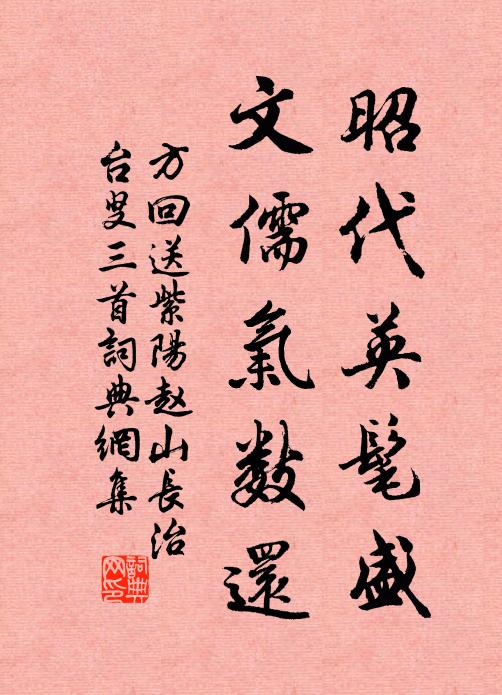 昭代英髦盛
文儒氣数還
方回送紫陽赵山長治
台叟三首詞典網集
詞典
网印